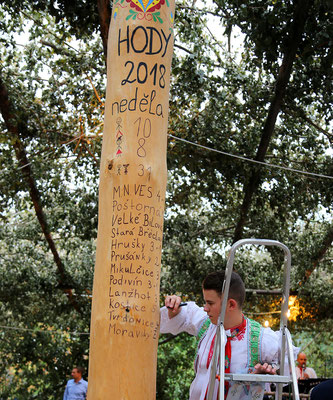 HODY
2018
neděla
10
8
31
M.N.VES 4
Poštorná
Velké Bílo
Stará Břecla
Hrušky 3
Prušánky
Mikulčice
Podivín 3
Lanžhot
Kostice
Tvrdonice
Moravský